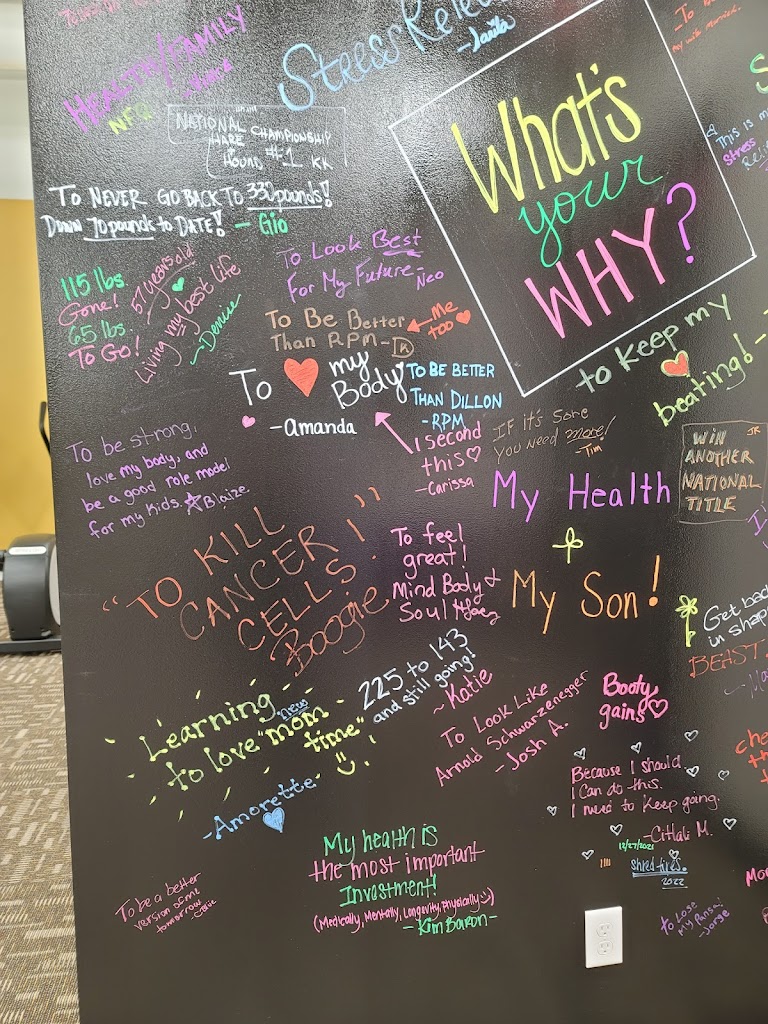 HEALTH/FAMILY
Stress Relie
What's
your
WHY?
NATIONAL
HARE CHAMPIONSHIP
HOUND #1 KK
This is m
Stress
TO NEVER GO BACK TO 330 pounds!
DOWN 70 pounds to DATE! - Gio
115 lbs
Gone!
65 lbs
To Go!
57 years old
Living my best life
- Denise
To Look Best
For My Future - Neo
To Be Better
Than RPM -
Me
too
To ❤ my
Body
- Amanda
TO BE BETTER
THAN DILLON
- RPM
I second
this ♡
- Carissa
to keep my
❤
beating! -
IF it's Sore
You need more!
- Tim
WIN JR
ANOTHER
NATIONAL
TITLE
To be strong,
love my body, and
be a good role model
for my kids. ☆ Blaize
My Health
"TO KILL
CANCER
CELLS!"
Boogie
To feel
great!
Mind Body &
Soul
My Son!
Get back
in shap
BEAST
Learning
news
to love "mom
time"
- Amorette
225 to 143
and still going!
~ Katie
To Look Like
Arnold Schwarzenegger
- Josh A.
Booty
gains ♡
Because I should
I can do this.
I need to keep going.
- Citlali M.
12/27/2021
2022
My health is
the most important
Investment!
(Medically, Mentally, Longevity, Physically :))
- Kim Baron -
To be a better
version of me
tomorrow
to lose
my Pansa!
- Jorge